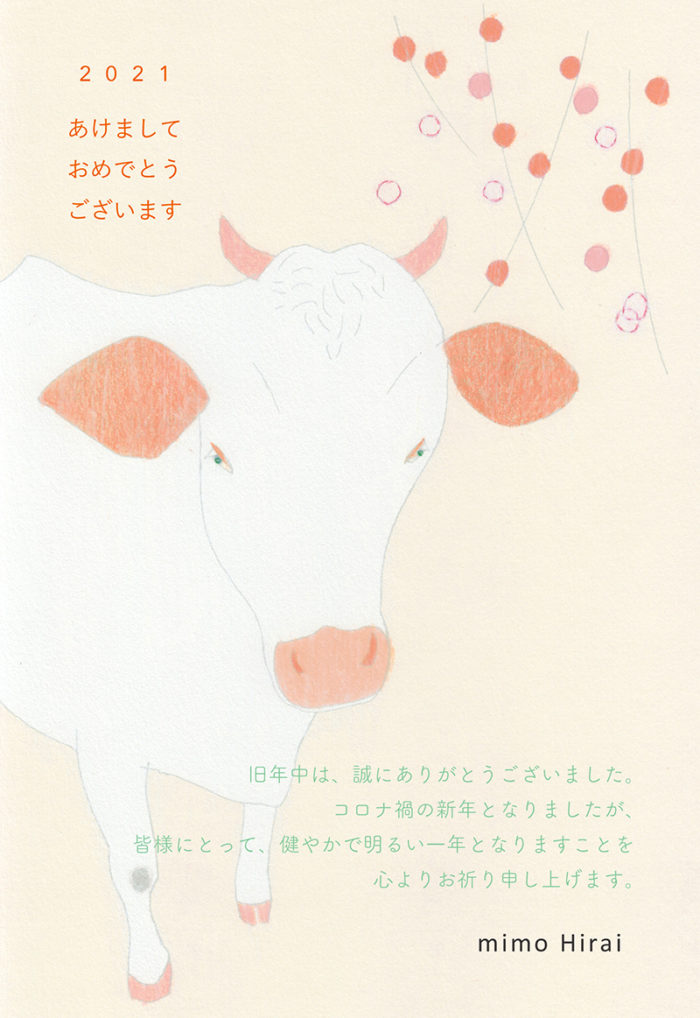 ２０２１
あけまして
おめでとう
ございます
旧年中は、誠にありがとうございました。
コロナ禍の新年となりましたが、
皆様にとって、健やかで明るい一年となりますことを
心よりお祈り申し上げます。
mimo Hirai